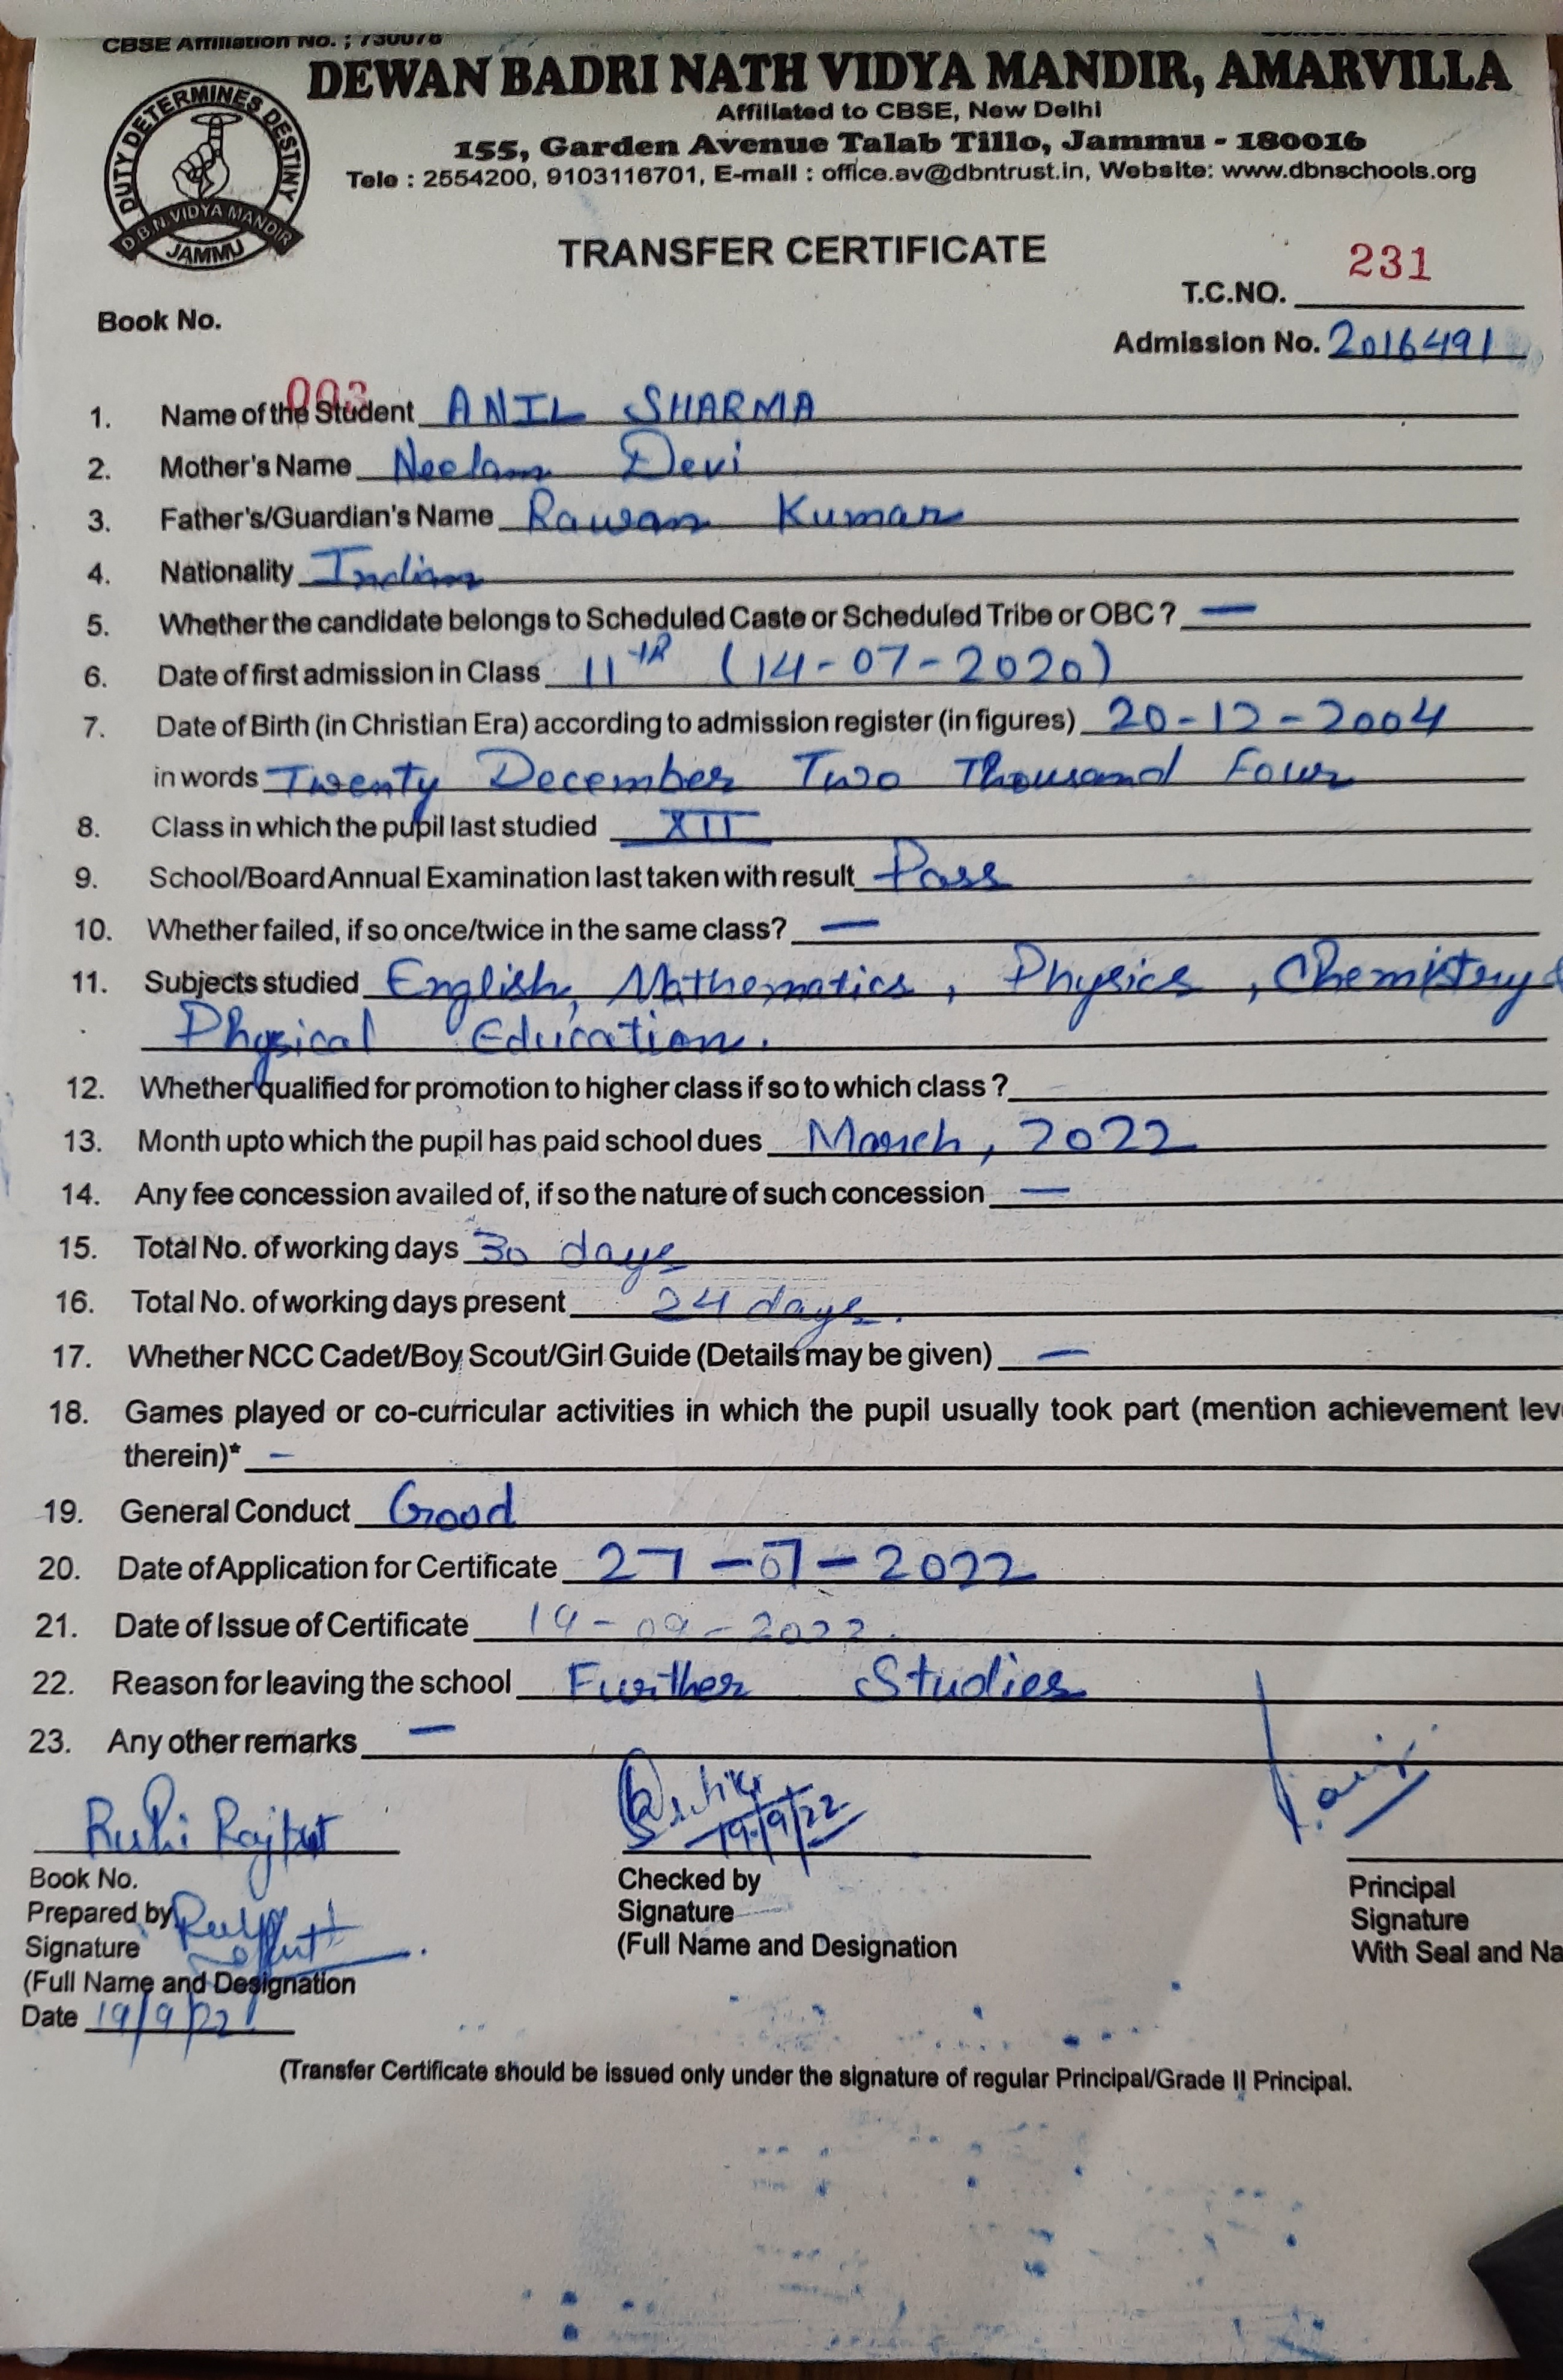 CBSE Affiliation No. ; 730078
DEWAN BADRI NATH VIDYA MANDIR, AMARVILLA
Affiliated to CBSE, New Delhi
155, Garden Avenue Talab Tillo, Jammu - 180016
Tele : 2554200, 9103116701, E-mail : office.av@dbntrust.in, Website: www.dbnschools.org
DUTY DETERMINES DESTINY
D.B.N. VIDYA MANDIR
JAMMU
TRANSFER CERTIFICATE
231
T.C.NO.
Book No.
Admission No. 2016491
003
1. Name of the Student ANIL SHARMA
2. Mother's Name Neelam Devi
3. Father's/Guardian's Name Rawan Kumar
4. Nationality Indian
5. Whether the candidate belongs to Scheduled Caste or Scheduled Tribe or OBC ? —
6. Date of first admission in Class 11th (14-07-2020)
7. Date of Birth (in Christian Era) according to admission register (in figures) 20-12-2004
in words Twenty December Two Thousand Four
8. Class in which the pupil last studied XII
9. School/Board Annual Examination last taken with result Pass
10. Whether failed, if so once/twice in the same class? —
11. Subjects studied English, Mathematics, Physics, Chemistry &
Physical Education.
12. Whether qualified for promotion to higher class if so to which class ?
13. Month upto which the pupil has paid school dues March, 2022
14. Any fee concession availed of, if so the nature of such concession —
15. Total No. of working days 30 days
16. Total No. of working days present 24 days.
17. Whether NCC Cadet/Boy Scout/Girl Guide (Details may be given) —
18. Games played or co-curricular activities in which the pupil usually took part (mention achievement lev
therein)* —
19. General Conduct Good
20. Date of Application for Certificate 27-07-2022
21. Date of Issue of Certificate 19-09-2022.
22. Reason for leaving the school Further Studies
23. Any other remarks —
Ruhi Rajput
19/9/22
Book No.
Checked by
Principal
Prepared by
Signature
Signature
Signature
(Full Name and Designation
With Seal and Na
(Full Name and Designation
Date 19/9/22
(Transfer Certificate should be issued only under the signature of regular Principal/Grade II Principal.